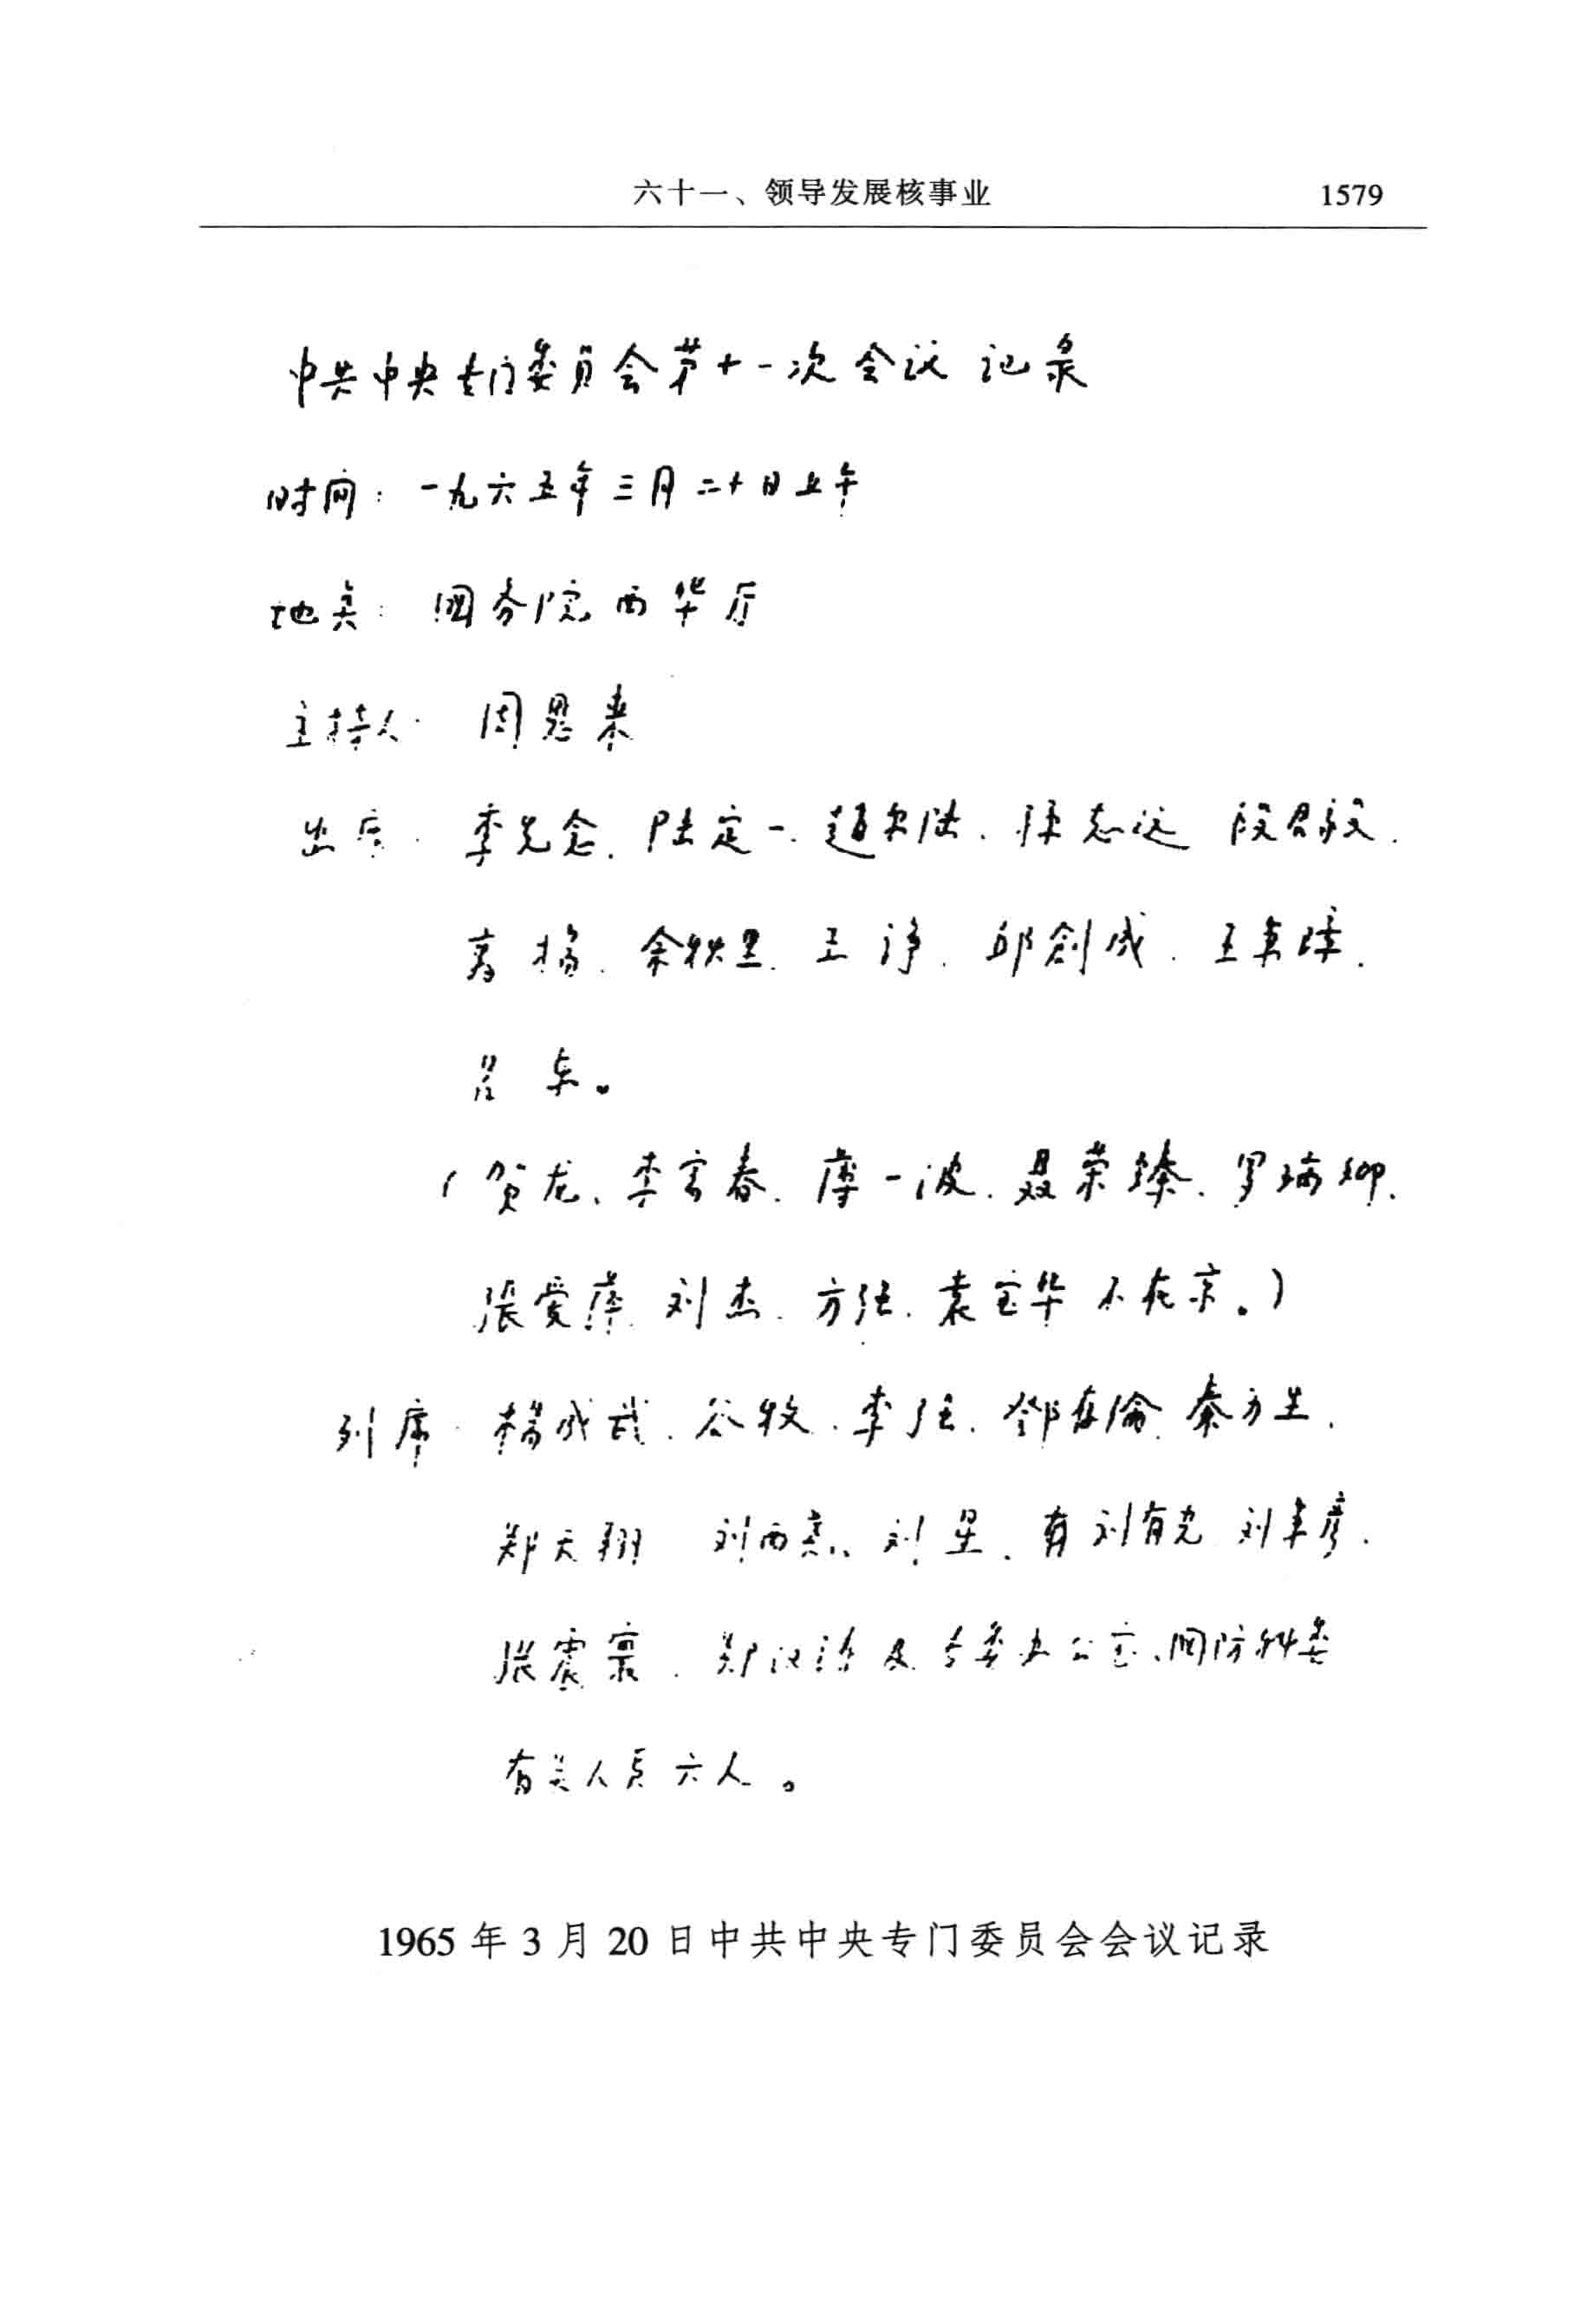 六十一、领导发展核事业 1579
中共中央专门委员会第十一次会议 记录
时间：一九六五年三月二十日上午
地点：国务院西华厅
主持人：周恩来
出席：李先念、陆定一、赵尔陆、陈志远 段君毅、
高扬、余秋里、王诤、邱创成、王秉璋、
吕东。
（贺龙、李富春、薄一波、聂荣臻、罗瑞卿、
张爱萍 刘杰、方强、袁宝华不在京。）
列席：杨成武、谷牧、李强、邹家华 秦力生、
郑天翔 刘西尧、刘星、有刘有光 刘秉彦、
张震寰、郑汉涛及专委办公室、国防科委
有关人员六人。
1965年3月20日中共中央专门委员会会议记录